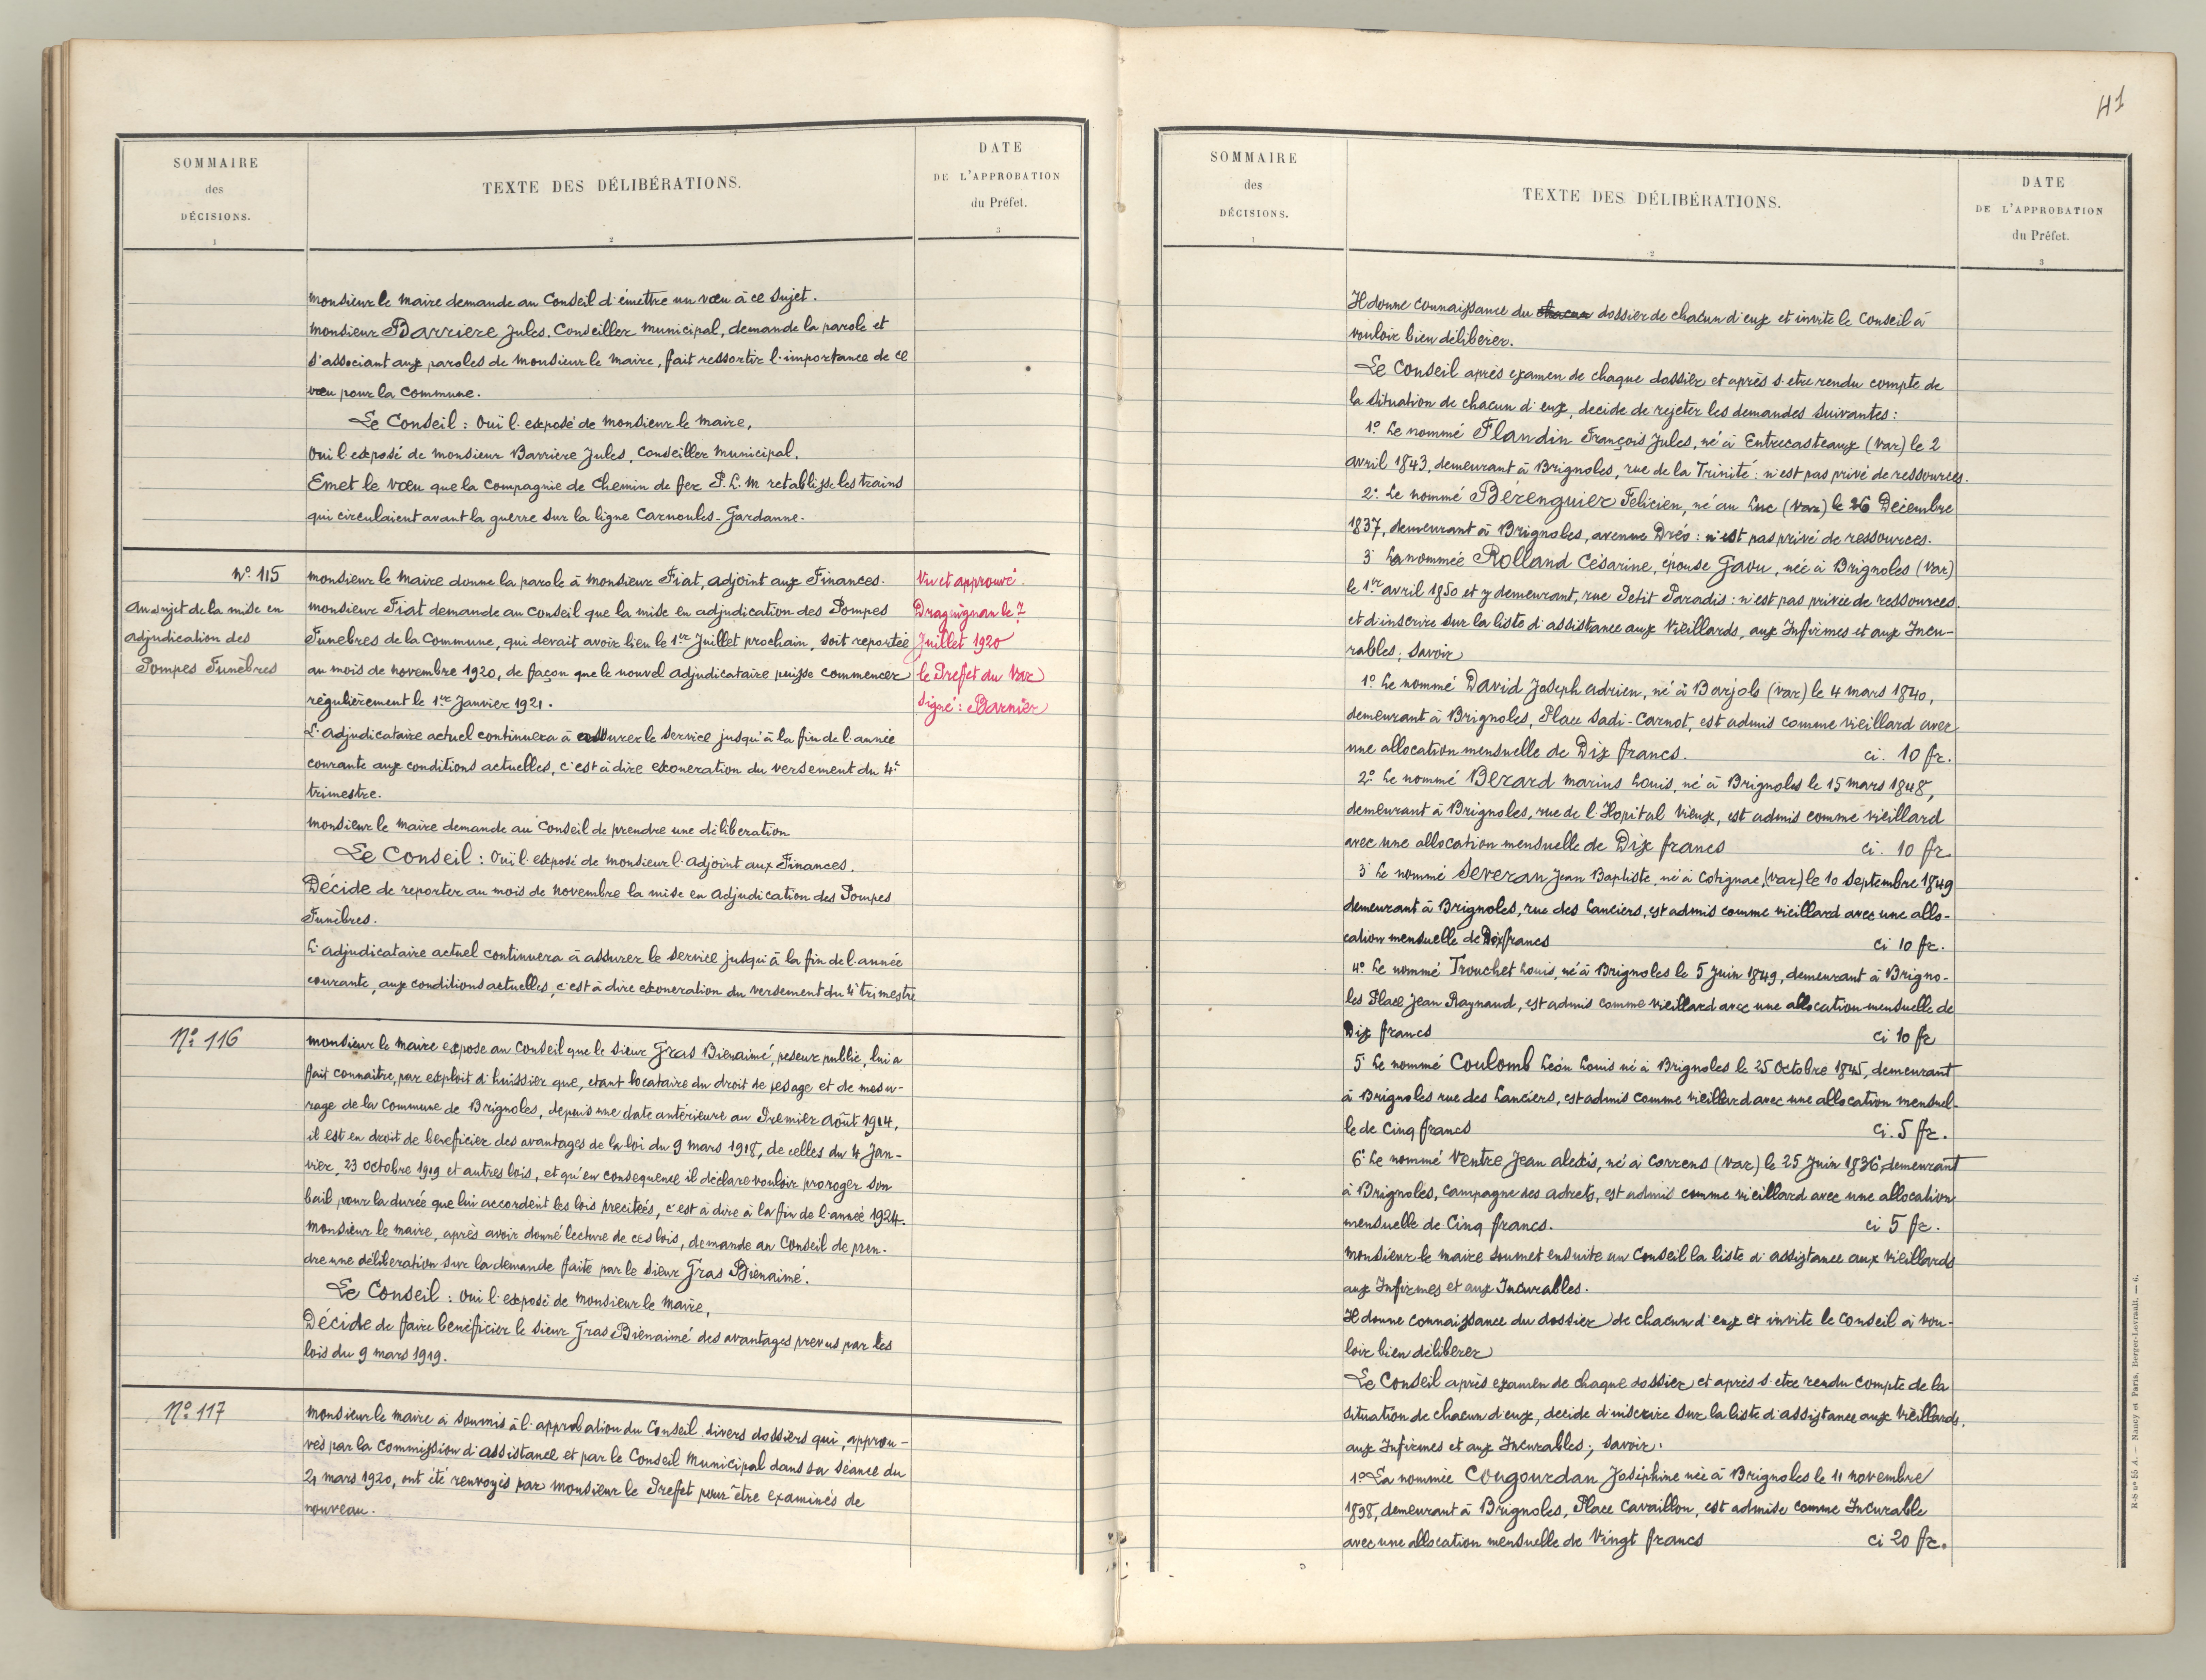 SOMMAIRE
des
DÉCISIONS.
1
TEXTE DES DÉLIBÉRATIONS.
2
DATE
DE L'APPROBATION
du Préfet.
3
Monsieur le Maire demande au Conseil d'émettre un vœu à ce sujet.
Monsieur Barriere Jules. Conseiller Municipal, demande la parole et
s'associant aux paroles de Monsieur le Maire, fait ressortir l'importance de ce
vœu pour la Commune.
Le Conseil : Ouï l'exposé de Monsieur le Maire,
Ouï l'exposé de Monsieur Barriere Jules, Conseiller Municipal.
Emet le vœu que la Compagnie de Chemin de fer P. L. M retablisse les trains
qui circulaient avant la guerre sur la ligne Carnoules-Gardanne.
No. 115
Au sujet de la mise en
adjudication des
Pompes Funèbres
Monsieur le Maire donne la parole à Monsieur Fiat, adjoint aux Finances.
Monsieur Fiat demande au Conseil que la mise en adjudication des Pompes
Funebres de la Commune, qui devait avoir lieu le 1er Juillet prochain, soit reportée
au mois de novembre 1920, de façon que le nouvel adjudicataire puisse commencer
régulièrement le 1er Janvier 1921.
L'adjudicataire actuel continuera à assurer le service jusqu'à la fin de l'année
courante aux conditions actuelles, c'est à dire exoneration du versement du 4e
trimestre.
Monsieur le Maire demande au Conseil de prendre une déliberation
Le Conseil : Ouï l'exposé de Monsieur l'Adjoint aux Finances.
Décide de reporter au mois de novembre la mise en adjudication des Pompes
Funèbres.
L'adjudicataire actuel continuera à assurer le service jusqu'à la fin de l'année
courante, aux conditions actuelles, c'est à dire exoneration du versement du 4e trimestre
Vu et approuvé.
Draguignan le 7
Juillet 1920
le Preffet du Var
Signé : Barnier
No. 116
Monsieur le Maire expose au Conseil que le sieur Gras Bienaimé, peseur public, lui a
fait connaitre, par exploit d'huissier que, etant locataire du droit de pesage et de mesu-
rage de la Commune de Brignoles, depuis une date antérieure au Premier Août 1914,
il est en droit de beneficier des avantages de la loi du 9 mars 1918, de celles du 4 Jan-
vier, 23 octobre 1919 et autres lois, et qu'en consequence il déclare vouloir proroger son
bail pour la durée que lui accordent les lois precitées, c'est à dire à la fin de l'année 1924.
Monsieur le maire, après avoir donné lecture de ces lois, demande au Conseil de pren-
dre une déliberation sur la demande faite par le sieur Gras Bienaimé.
Le Conseil : Ouï l'exposé de Monsieur le Maire,
Décide de faire beneficier le sieur Gras Bienaimé des avantages prevus par les
lois du 9 mars 1919.
No. 117
Monsieur le Maire a soumis à l'approbation du Conseil divers dossiers qui, approu-
vés par la Commission d'assistance et par le Conseil Municipal dans sa séance du
21 mars 1920, ont été renvoyés par Monsieur le Preffet pour être examinés de
nouveau.
41
SOMMAIRE
des
DÉCISIONS.
1
TEXTE DES DÉLIBÉRATIONS.
2
DATE
DE L'APPROBATION
du Préfet.
3
Il donne connaissance du chacun dossier de chacun d'eux et invite le Conseil à
vouloir bien déliberer.
Le Conseil après examen de chaque dossier et après s'etre rendu compte de
la situation de chacun d'eux, decide de rejeter les demandes suivantes :
1o. Le nommé Flandin François Jules, né à Entrecasteaux (Var) le 2
avril 1843, demeurant à Brignoles, rue de la Trinité : n'est pas privé de ressources.
2o. Le nommé Bérenguier Felicien, né au Luc (Var) le 26 Decembre
1837, demeurant à Brignoles, avenue Dréo : n'est pas privé de ressources.
3o La nommée Rolland Césarine, épouse Gavu, née à Brignoles (Var)
le 1er avril 1850 et y demeurant, rue Petit Paradis : n'est pas privée de ressources.
et d'inscrire sur la liste d'assistance aux Vieillards, aux Infirmes et aux Incu-
rables ; savoir
1o. Le nommé David Joseph Adrien, né à Barjols (Var) le 4 mars 1840,
demeurant à Brignoles, Place Sadi-Carnot, est admis comme vieillard avec
une allocation mensuelle de Dix francs. ci. 10 fr.
2o. Le nommé Berard Marius Louis, né à Brignoles le 15 mars 1848,
demeurant à Brignoles, rue de l'Hopital Vieux, est admis comme vieillard
avec une allocation mensuelle de Dix francs ci. 10 fr.
3o Le nommé Severan Jean Baptiste, né à Cotignac, (Var) le 10 septembre 1849
demeurant à Brignoles, rue des Lanciers, est admis comme vieillard avec une allo-
cation mensuelle de Dix francs ci 10 fr.
4o. Le nommé Trouchet Louis, né à Brignoles le 5 Juin 1849, demeurant à Brigno-
les Place Jean Raynaud, est admis comme vieillard avec une allocation mensuelle de
Dix francs ci 10 fr
5o Le nommé Coulomb Léon Louis né à Brignoles le 25 octobre 1845, demeurant
à Brignoles rue des Lanciers, est admis comme vieillard avec une allocation mensuel-
le de Cinq francs ci. 5 fr.
6o Le nommé Ventre Jean Alexis, né à Correns (Var) le 25 Juin 1836, demeurant
à Brignoles, campagne des adrets, est admis comme vieillard avec une allocation
mensuelle de Cinq francs. ci 5 fr.
Monsieur le Maire soumet ensuite au Conseil la liste d'assistance aux Vieillards
aux Infirmes et aux Incurables.
Il donne connaissance du dossier de chacun d'eux et invite le Conseil à vou-
loir bien déliberer
Le Conseil après examen de chaque dossier et après s'etre rendu compte de la
situation de chacun d'eux, decide d'inscrire sur la liste d'assistance aux Vieillards,
aux Infirmes et aux Incurables ; savoir :
1o. La nommée Cougourdan Joséphine née à Brignoles le 11 novembre
1898, demeurant à Brignoles, Place Cavaillon, est admise comme Incurable
avec une allocation mensuelle de Vingt francs ci 20 fr.
R-S no 55 A. — Nancy et Paris, Berger-Levrault. — 6.